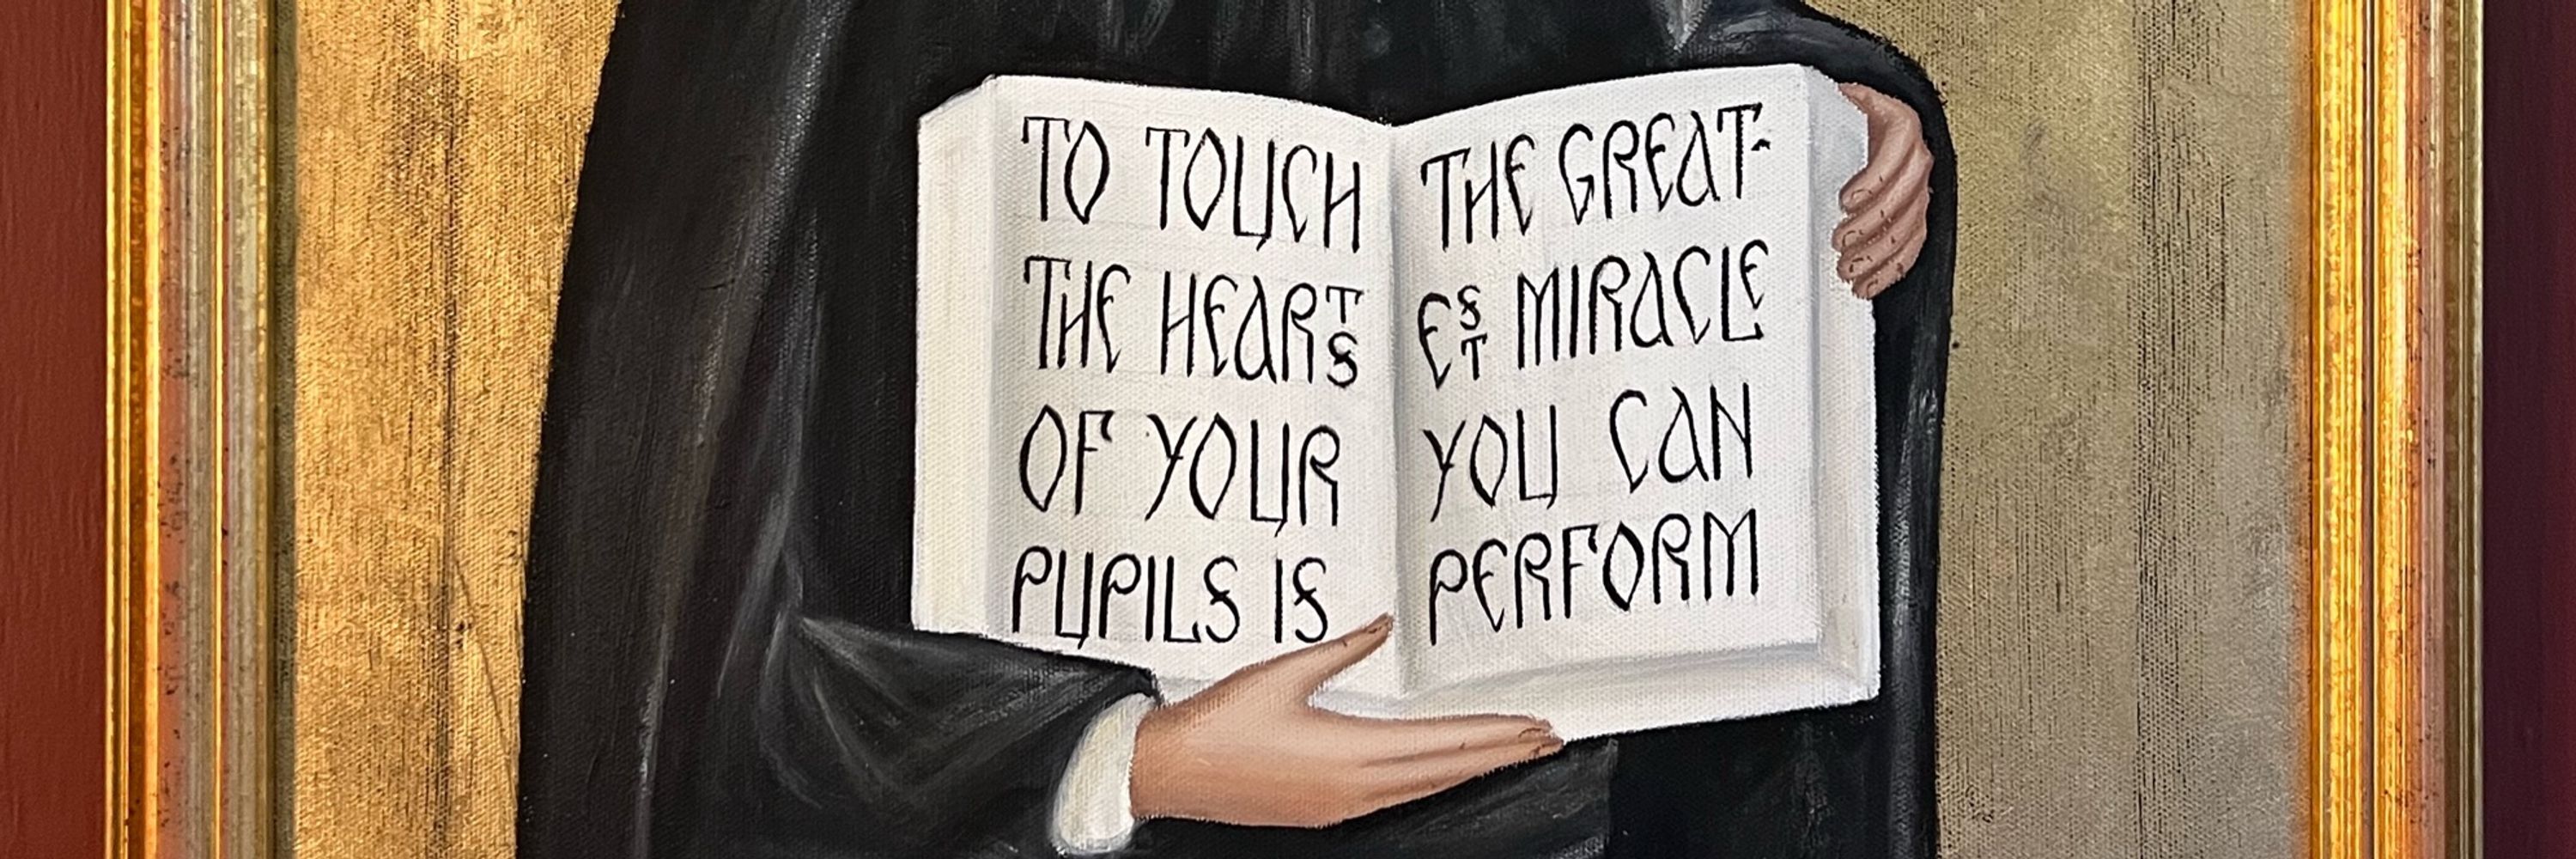 TO TOUCH
THE HEARTS
OF YOUR
PUPILS IS
THE GREAT-
EST MIRACLE
YOU CAN
PERFORM